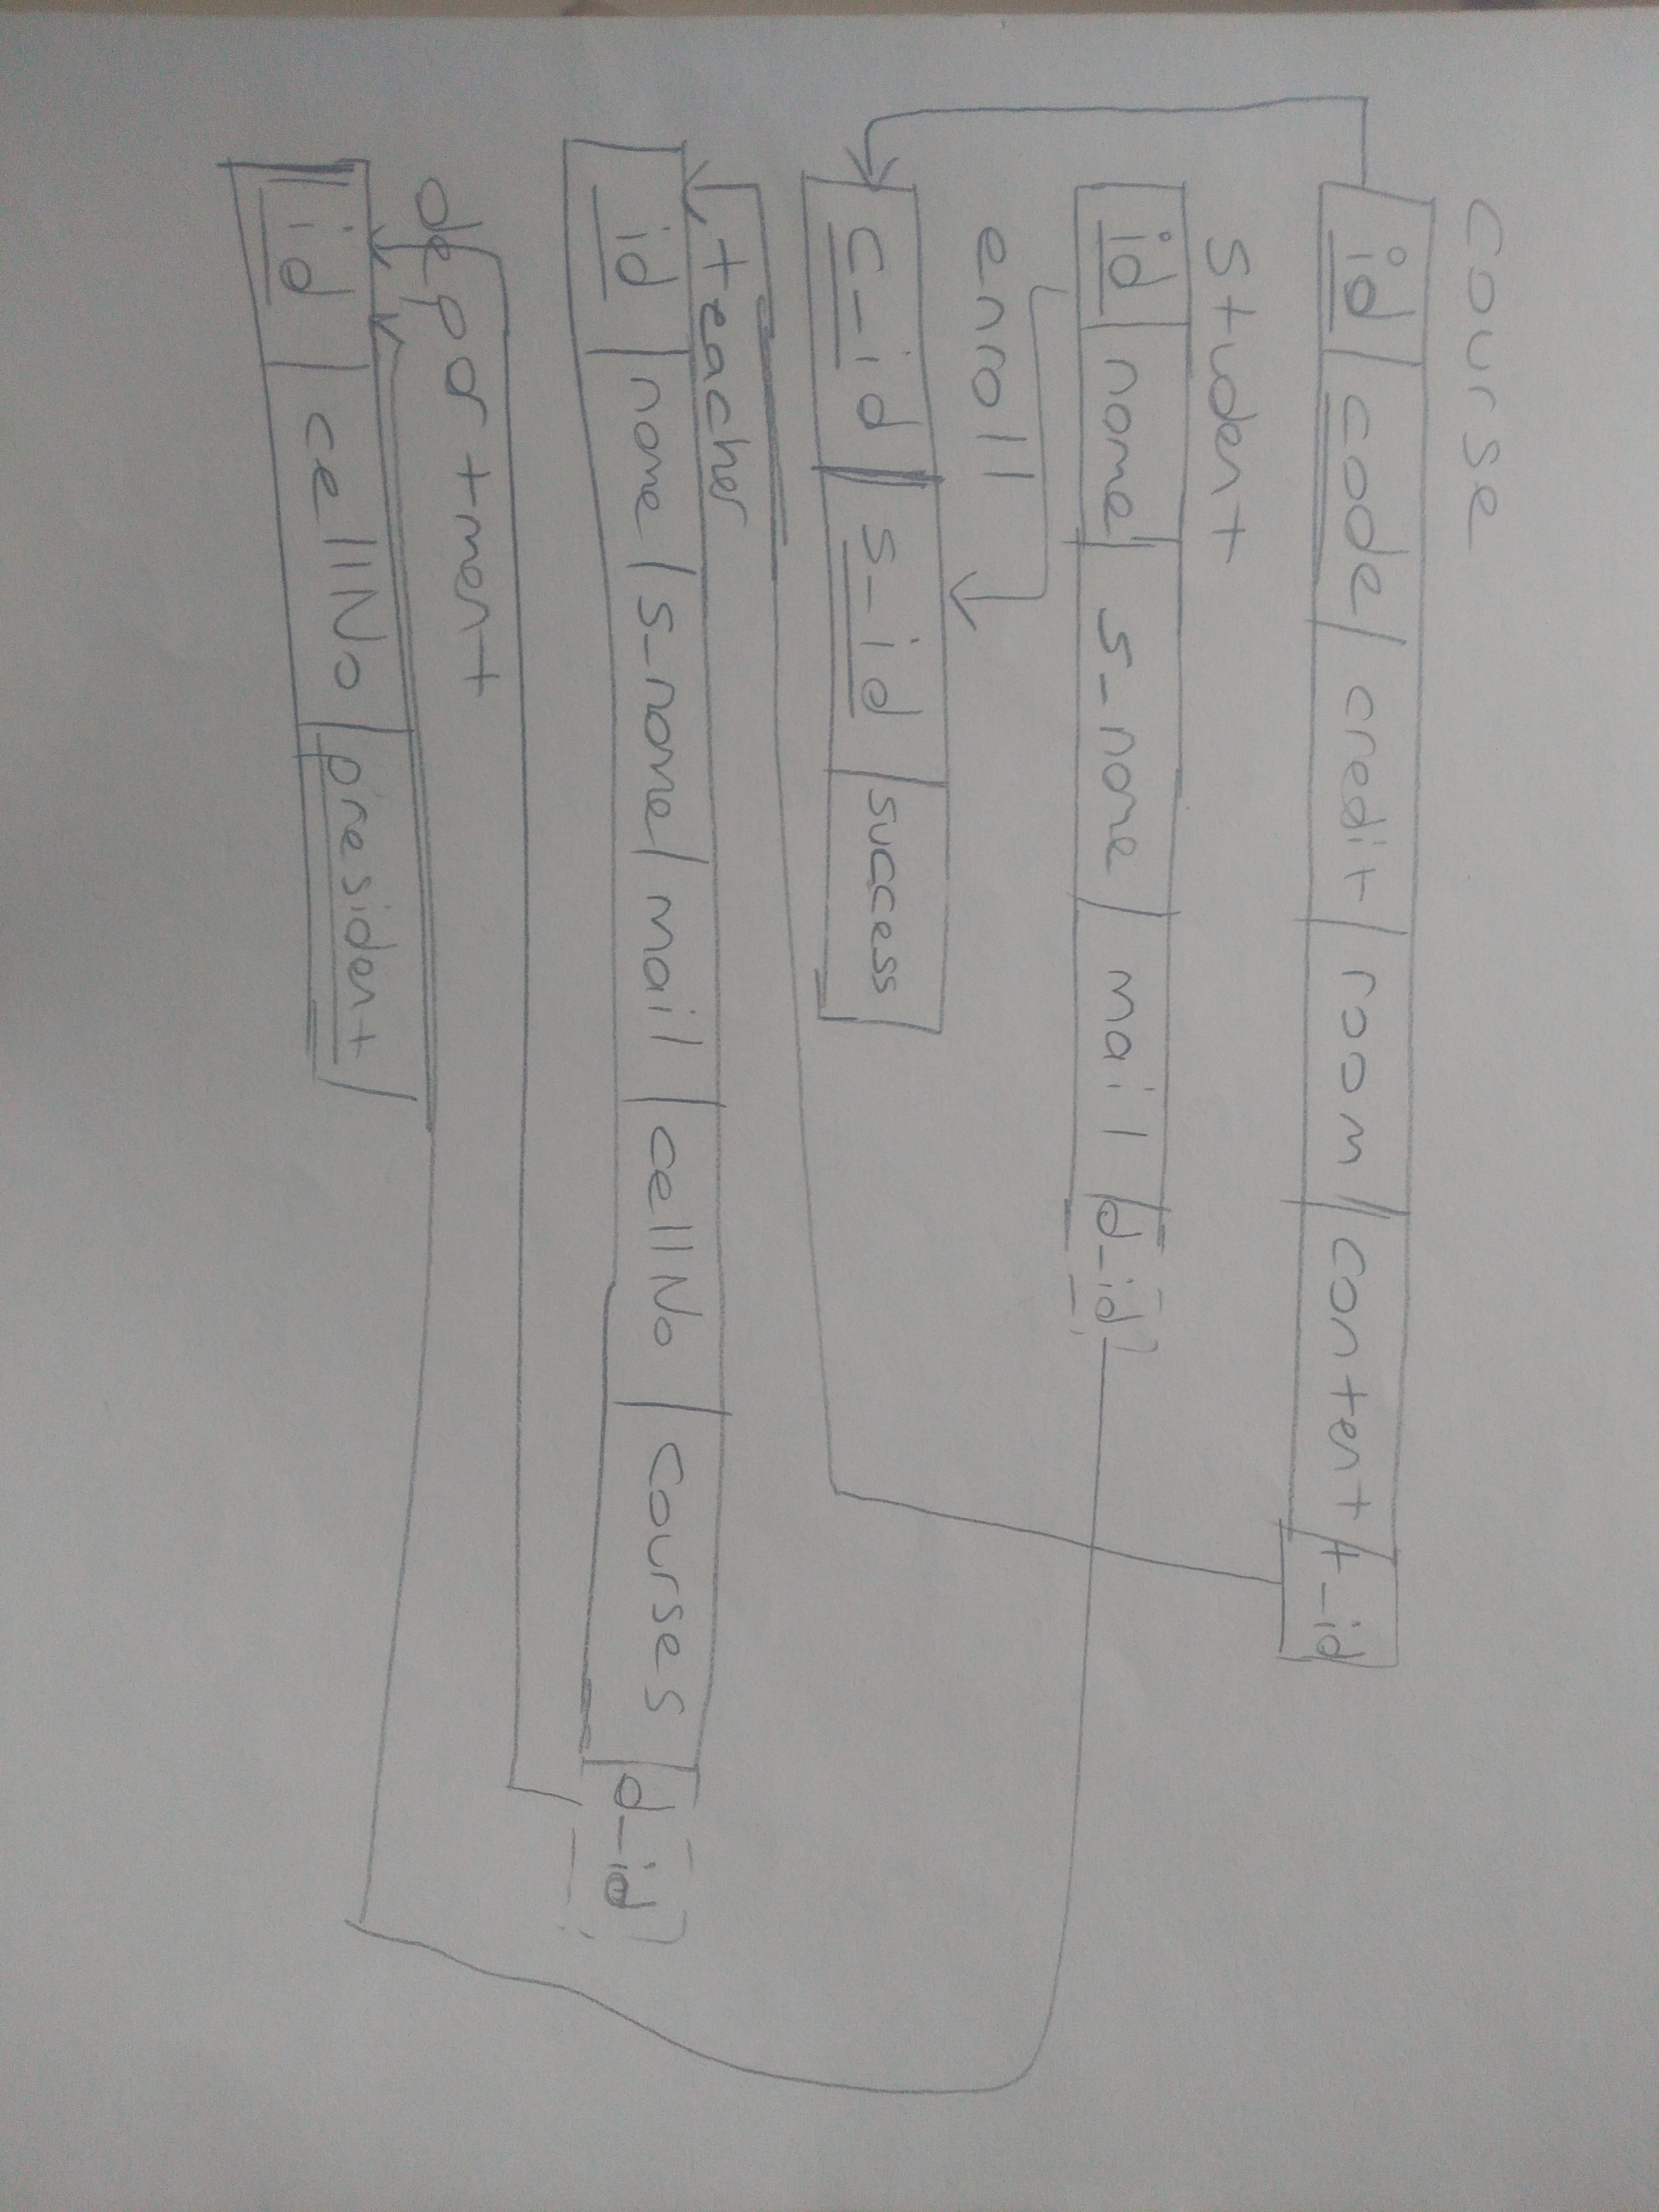 course
id code credit room content t-id
student
id name s-name mail d-id
enroll
c-id s-id success
teacher
id name s-name mail cellNo courses d-id
department
id cellNo president